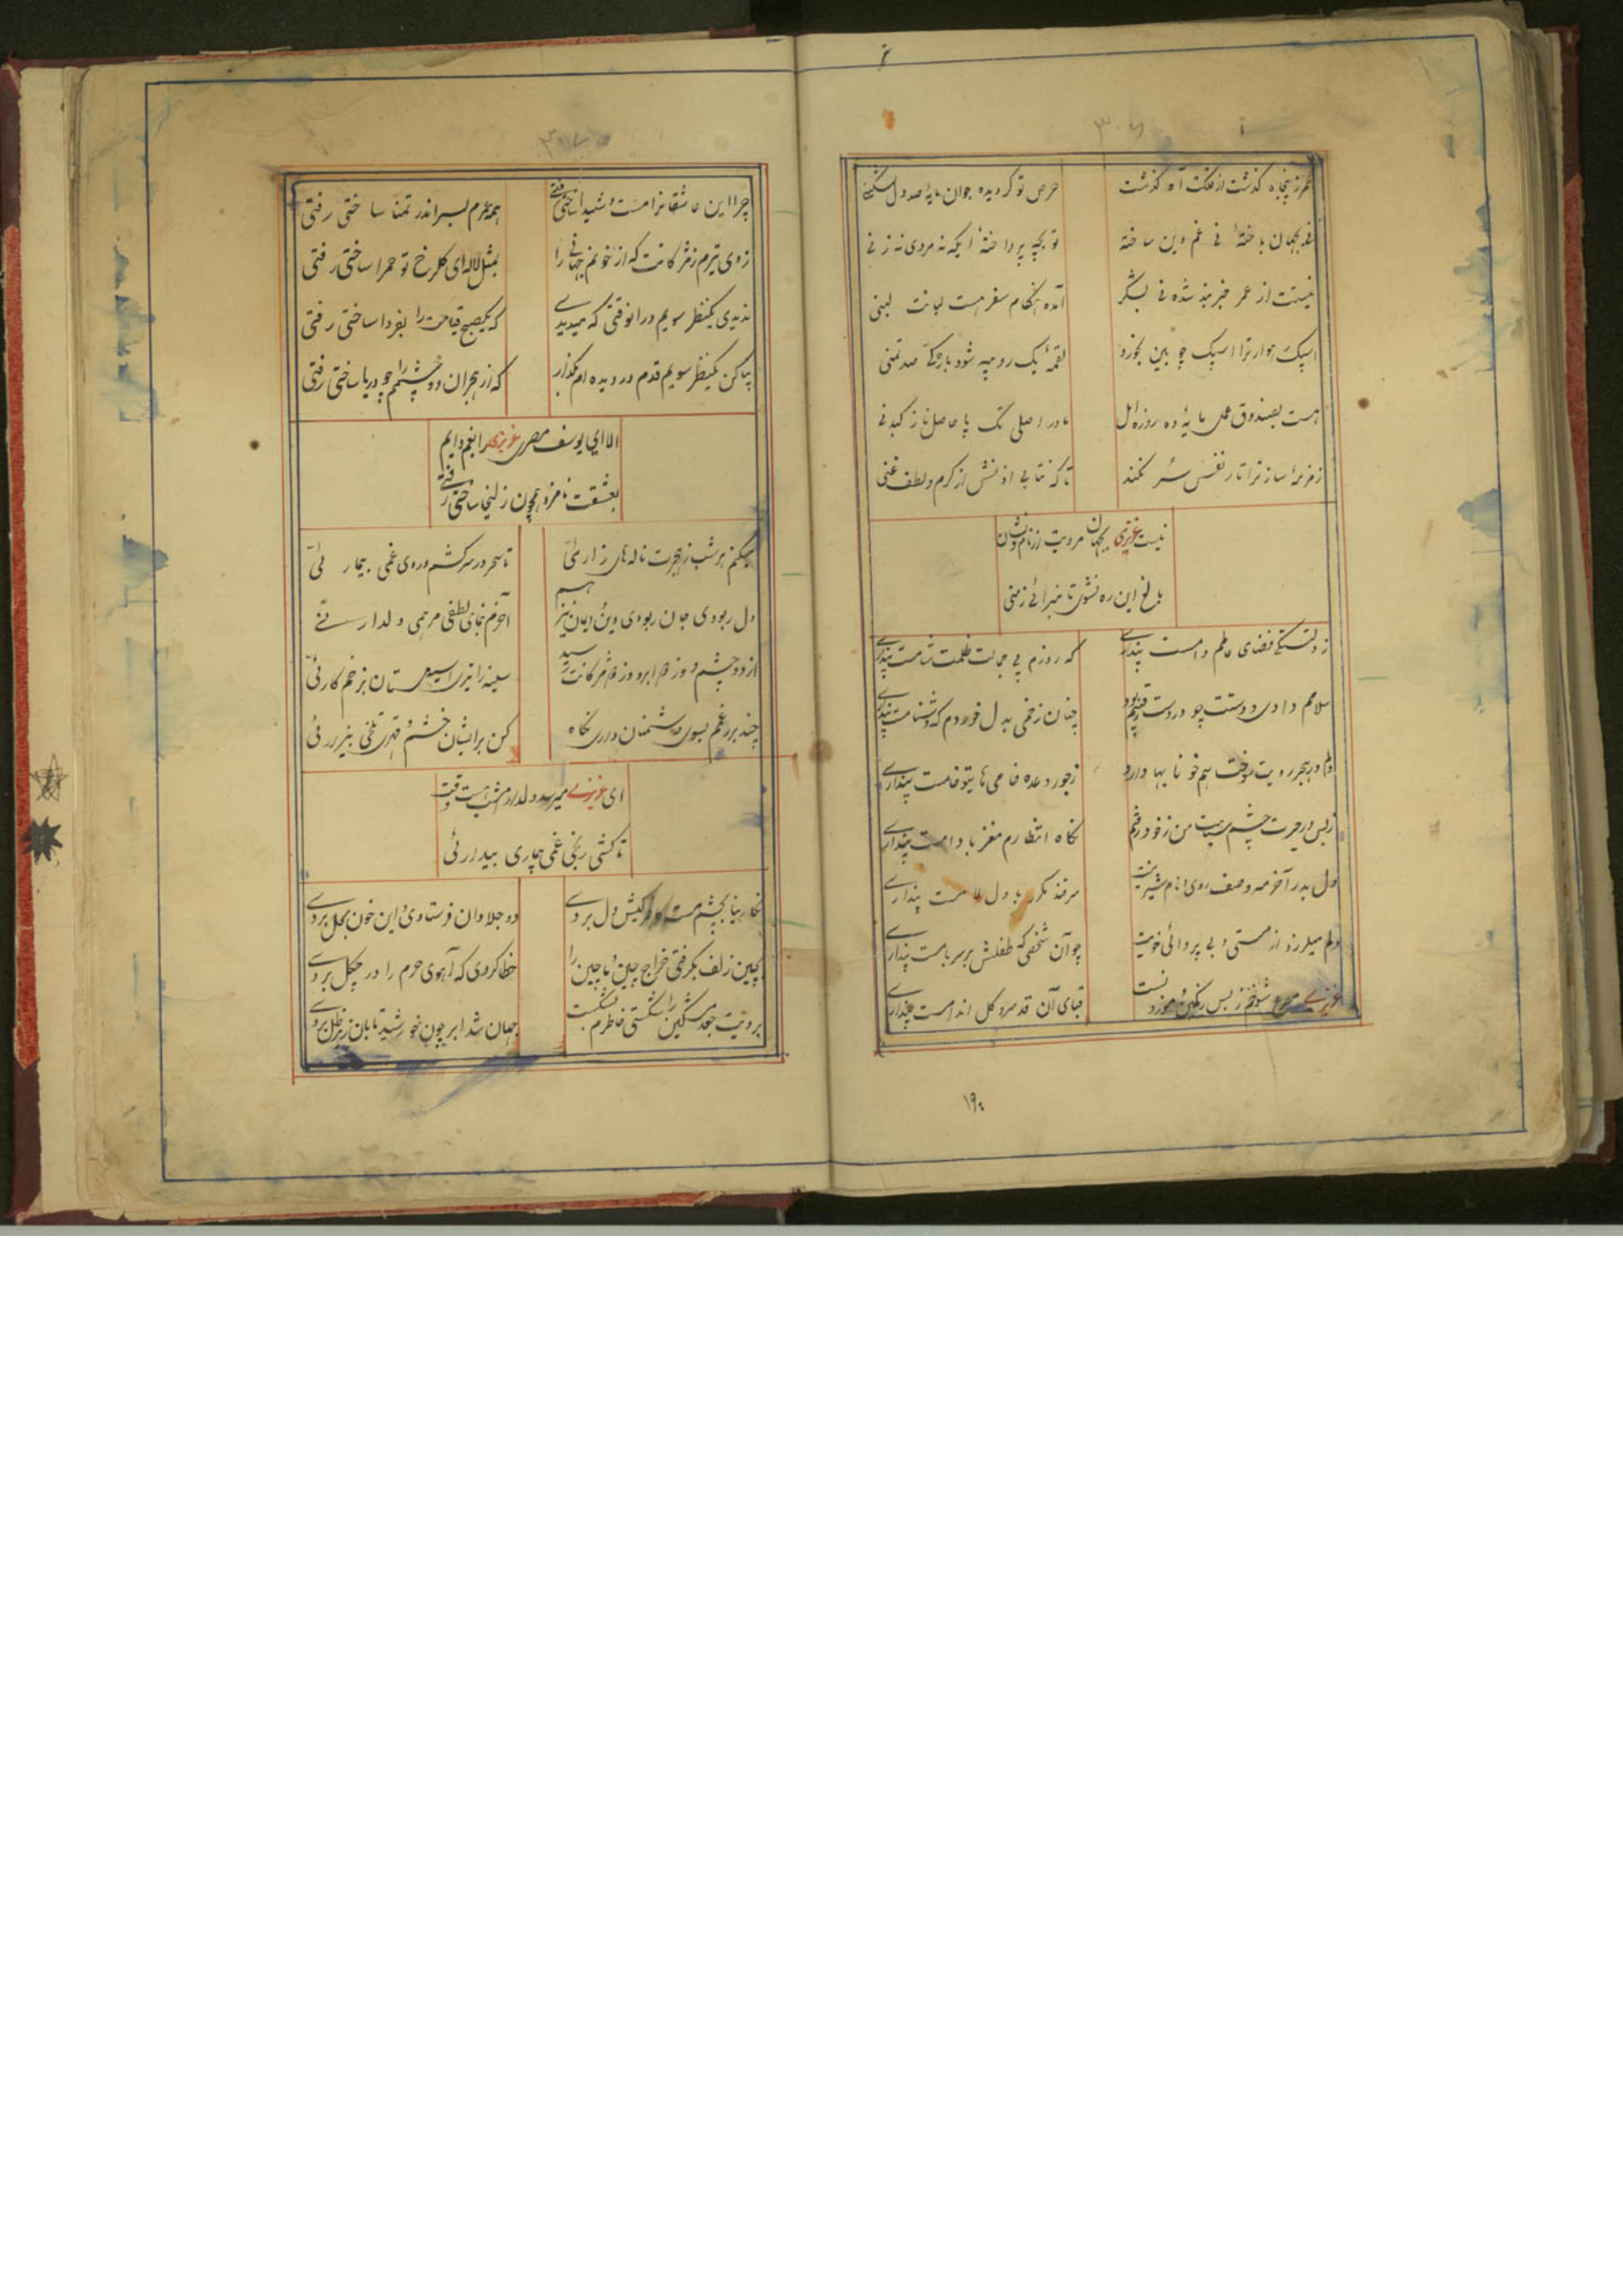 ۳۰۶
عمر ز پنجاه گذشت از فلکت آه گذشت
حرص تو گردیده جوان مایهٔ صد دل شکنی
عمر بجهان باخته نی غم دین ساخته
تو بچه پرداختهٔ ایکه نه مردی نه زنی
نیستت از عمر خبر شده نی
آمده هنگام سفر هست لبانت لبنی
اسپک هوار ترا اسپک چوبین
لقمهٔ یک رو میه شود بار صد تمنی
هست بصندوق عمل مایهٔ ده روزه امل
مادر اصلی تک پا حاصل ناز کبدنی
زمزمهٔ ساز ترا تار نفس سر نکند
تا که نتابی از کرم و لطف غنی
نیست عزیزی بجهان مرویت از نام و نشان
بالغ این ره نشوی تا نبرائی ز منی
فضای عالم دامست پنداری
که روزم بی جمالت ظلمت شامست پنداری
سلامم دادی و دستت چو در دست رقیبم بود
چنان زخمی بدل خوردم که دشنامست پنداری
دلم در هجر رویت سوخت هم خونابها دارد
ز جور وعده خامی های تو خامست پنداری
ز بس در حیرت چشم سیاهت من ز خود رفتم
نگاه انتظارم مغز بادامست پنداری
دل بدر آخر وصف روی نام شیرینت
پنداری
دلم میلرزد از مستی و بی پروائی خویت
چو آن شخصی که طفلش بر سر بامست پنداری
عزیزی مصرع شوخم ز بس رنگین و موزونست
قبای آن قد سرو گل اندامست پنداری
۱۹۰
۳۰۷
چرا این عاشقانرا مست و شیدا ساختی رفتی
همه عمرم بسر اندر تمنا ساختی رفتی
زدی تیرم ز مژگانت که از خونم جهانی را
بمثل لاله ای گلرخ تو حمرا ساختی رفتی
ندیدی یکنظر سویم در آنوقتی که میدیدی
که یک صبح قیامت را بفردا ساختی رفتی
بیا کن یکنظر سویم قدم در دیده ام بگذار
که از هجران دو چشمم را چو دریا ساختی رفتی
الا ای یوسف مصری عزیزی را بغم دایم
بعشقت نامزد همچون زلیخا ساختی رفتی
میکنم هر شب ز هجرت ناله های زارئی
تا سحر در سر کشم دردی غمی بیمارئی
دل ربودی جان ربودی دین و ایمان نیز هم
آخرم ننمائی لطفی مرهمی دلدارئی
از دو چشم و ز ابرو و ز مژگانت رسید
سینه را تیری اسیرستان بزخم کارئی
چند بر رغمم بسوی دشمنان داری نگاه
کن برایشان خشم و قهری تلخی بیزارئی
ای عزیزی میرسد دلدارم امشب هست وقت
تا کشی رنجی غمی بیداری ئی
نگارینا بچشم مست کافرکیش دل بردی
دو جلادان فرستادی و این خون بحل بردی
بچین زلف بگرفتی خراج چین و ماچین را
خطا کردی که آهوی حرم را در چگل بردی
برویت جعد مشکین را شکستی خاطرم بشکست
جهان شد ابر چون خورشید تابان زیر ظل بردی